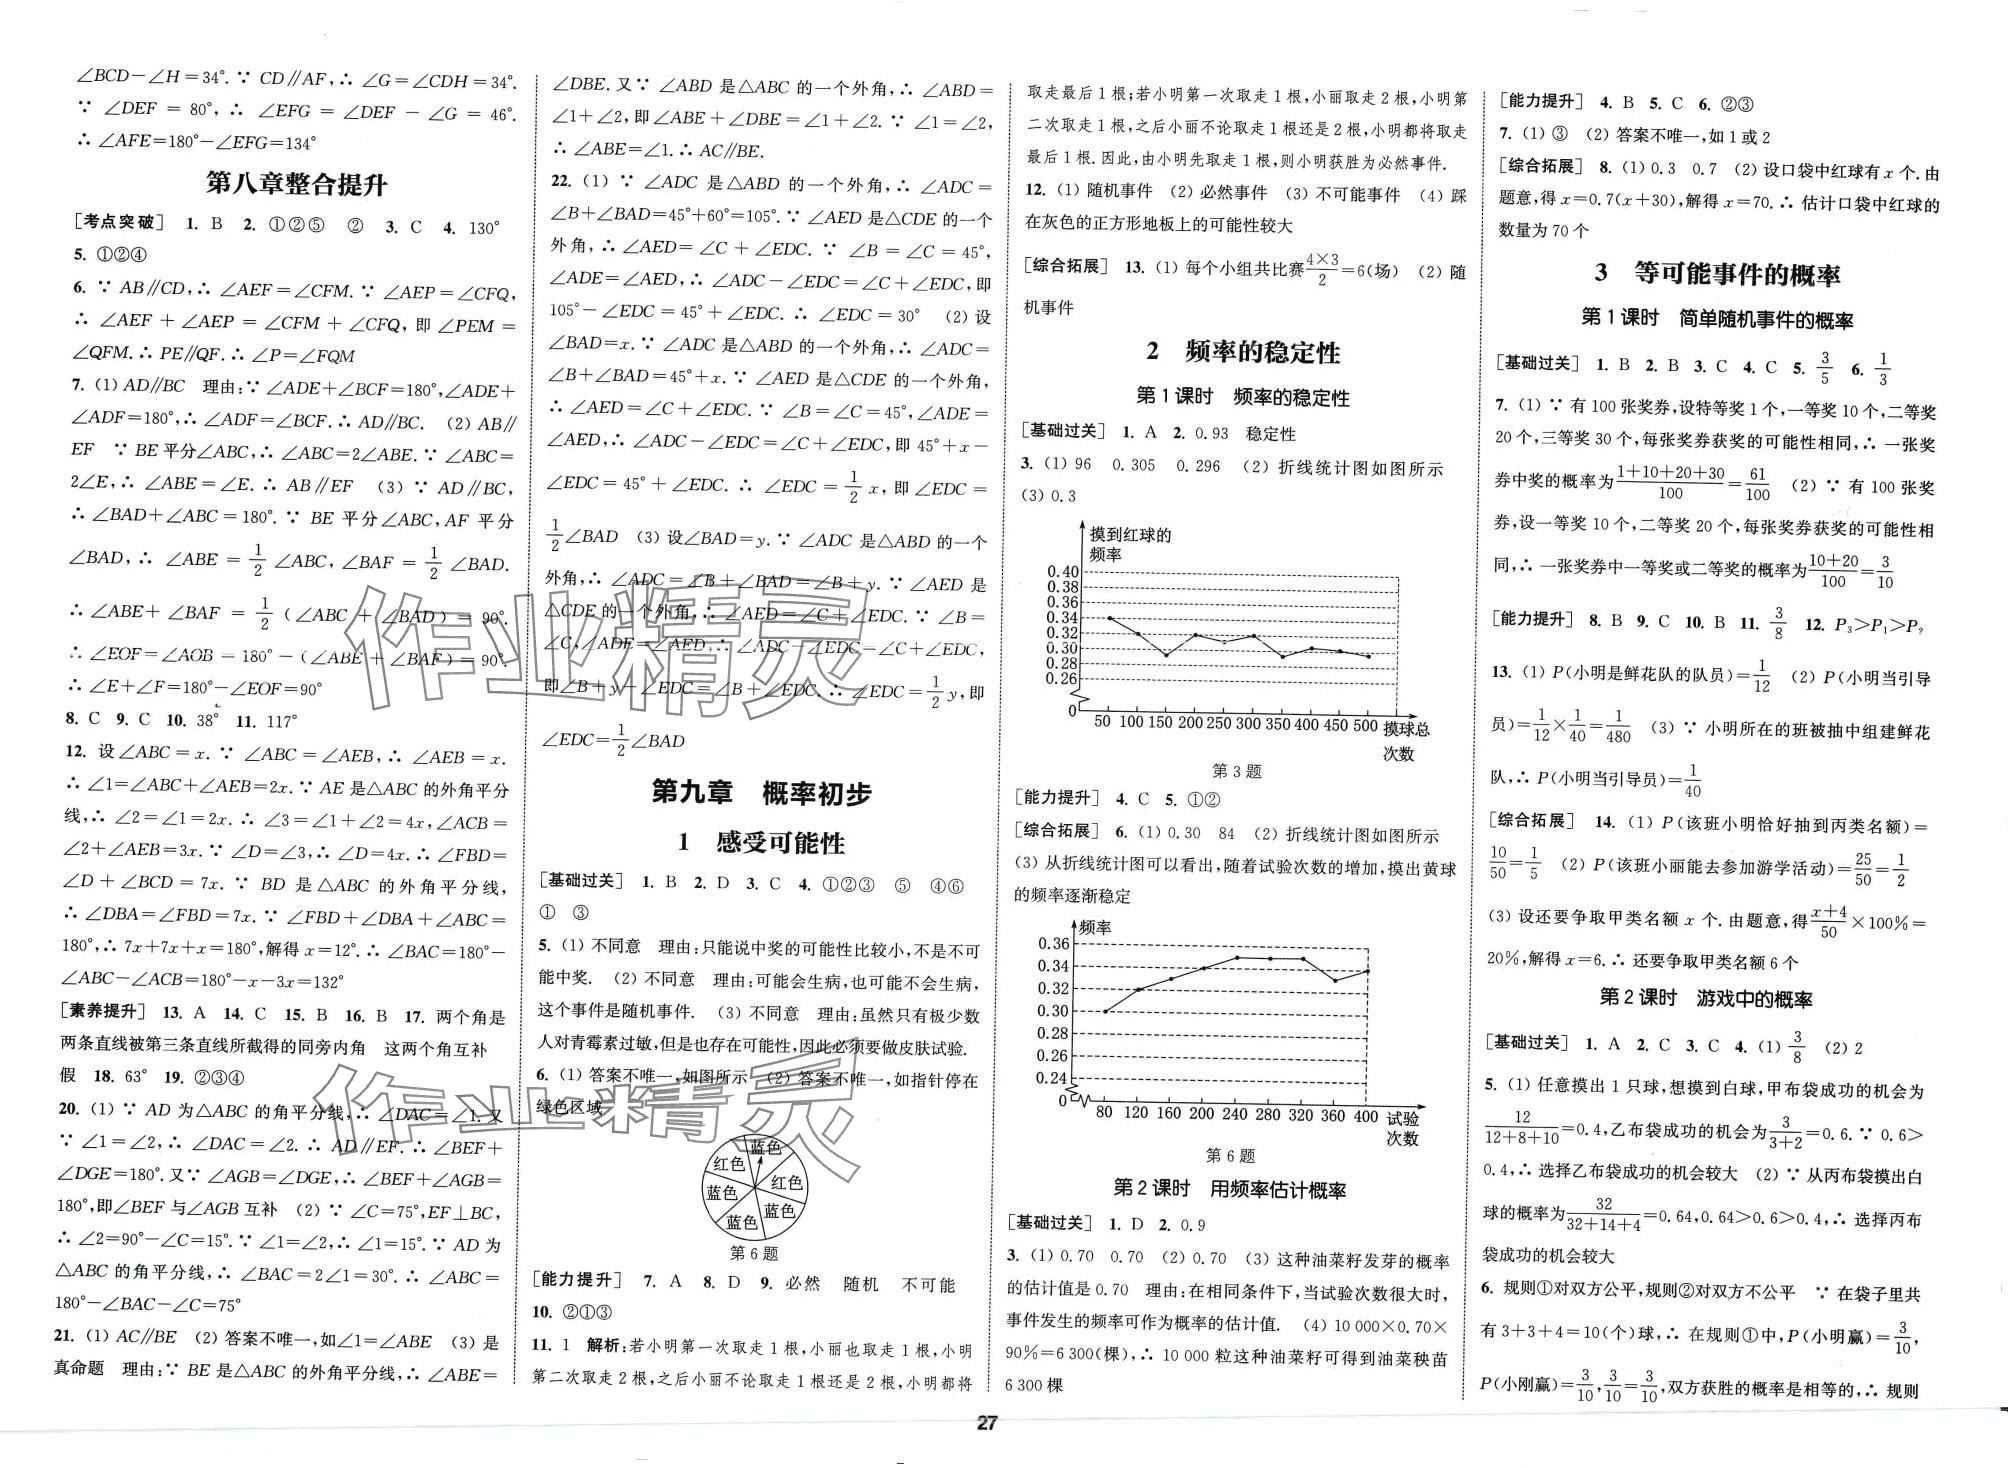 ∠BCD－∠H＝34°.∵ CD∥AF,∴ ∠G＝∠CDH＝34°.
∵ ∠DEF ＝ 80°, ∴ ∠EFG ＝ ∠DEF － ∠G ＝ 46°.
∴ ∠AFE＝180°－∠EFG＝134°
第八章整合提升
[考点突破] 1. B 2. ①②⑤ ② 3. C 4. 130°
5. ①②④
6. ∵ AB∥CD,∴ ∠AEF＝∠CFM.∵ ∠AEP＝∠CFQ,
∴ ∠AEF ＋ ∠AEP ＝ ∠CFM ＋ ∠CFQ, 即 ∠PEM ＝
∠QFM.∴ PE∥QF.∴ ∠P＝∠FQM
7. (1) AD∥BC 理由:∵ ∠ADE＋∠BCF＝180°,∠ADE＋
∠ADF＝180°,∴ ∠ADF＝∠BCF.∴ AD∥BC. (2) AB∥
EF ∵ BE平分∠ABC,∴ ∠ABC＝2∠ABE.∵ ∠ABC＝
2∠E,∴ ∠ABE＝∠E.∴ AB∥EF (3) ∵ AD∥BC,
∴ ∠BAD＋∠ABC＝180°.∵ BE 平分∠ABC,AF 平分
∠BAD, ∴ ∠ABE ＝ 1/2 ∠ABC, ∠BAF ＝ 1/2 ∠BAD.
∴ ∠ABE＋ ∠BAF ＝ 1/2 (∠ABC ＋ ∠BAD) ＝ 90°.
∴ ∠EOF＝∠AOB ＝ 180°－(∠ABE ＋ ∠BAF)＝90°.
∴ ∠E＋∠F＝180°－∠EOF＝90°
8. C 9. C 10. 38° 11. 117°
12. 设∠ABC＝x.∵ ∠ABC＝∠AEB,∴ ∠AEB＝x.
∴ ∠1＝∠ABC＋∠AEB＝2x.∵ AE是△ABC的外角平分
线,∴ ∠2＝∠1＝2x.∴ ∠3＝∠1＋∠2＝4x,∠ACB＝
∠2＋∠AEB＝3x.∵ ∠D＝∠3,∴ ∠D＝4x.∴ ∠FBD＝
∠D ＋ ∠BCD ＝ 7x.∵ BD 是 △ABC 的外角平分线,
∴ ∠DBA＝∠FBD＝7x.∵ ∠FBD＋∠DBA＋∠ABC＝
180°,∴ 7x＋7x＋x＝180°,解得x＝12°.∴ ∠BAC＝180°－
∠ABC－∠ACB＝180°－x－3x＝132°
[素养提升] 13. A 14. C 15. B 16. B 17. 两个角是
两条直线被第三条直线所截得的同旁内角 这两个角互补
假 18. 63° 19. ②③④
20. (1) ∵ AD为△ABC的角平分线,∴ ∠DAC＝∠1.又
∵ ∠1＝∠2,∴ ∠DAC＝∠2.∴ AD∥EF.∴ ∠BEF＋
∠DGE＝180°.又∵ ∠AGB＝∠DGE,∴ ∠BEF＋∠AGB＝
180°,即∠BEF与∠AGB互补 (2) ∵ ∠C＝75°,EF⊥BC,
∴ ∠2＝90°－∠C＝15°.∵ ∠1＝∠2,∴ ∠1＝15°.∵ AD为
△ABC的角平分线,∴ ∠BAC＝2∠1＝30°.∴ ∠ABC＝
180°－∠BAC－∠C＝75°
21. (1) AC∥BE (2) 答案不唯一,如∠1＝∠ABE (3) 是
真命题 理由:∵ BE是△ABC的外角平分线,∴ ∠ABE＝
∠DBE.又∵ ∠ABD 是△ABC 的一个外角,∴ ∠ABD＝
∠1＋∠2,即∠ABE＋∠DBE＝∠1＋∠2.∵ ∠1＝∠2,
∴ ∠ABE＝∠1.∴ AC∥BE.
22. (1) ∵ ∠ADC 是△ABD 的一个外角,∴ ∠ADC＝
∠B＋∠BAD＝45°＋60°＝105°.∵ ∠AED是△CDE的一个
外角,∴ ∠AED＝∠C＋∠EDC.∵ ∠B＝∠C＝45°,
∠ADE＝∠AED,∴ ∠ADC－∠EDC＝∠C＋∠EDC,即
105°－∠EDC＝45°＋∠EDC.∴ ∠EDC＝30° (2) 设
∠BAD＝x.∵ ∠ADC 是△ABD的一个外角,∴ ∠ADC＝
∠B＋∠BAD＝45°＋x.∵ ∠AED是△CDE的一个外角,
∴ ∠AED＝∠C＋∠EDC.∵ ∠B＝∠C＝45°,∠ADE＝
∠AED,∴ ∠ADC－∠EDC＝∠C＋∠EDC,即45°＋x－
∠EDC＝45°＋∠EDC.∴ ∠EDC＝1/2 x,即∠EDC＝
1/2∠BAD (3) 设∠BAD＝y.∵ ∠ADC是△ABD的一个
外角,∴ ∠ADC＝∠B＋∠BAD＝∠B＋y.∵ ∠AED 是
△CDE的一个外角,∴ ∠AED＝∠C＋∠EDC.∵ ∠B＝
∠C,∠ADE＝∠AED,∴ ∠ADC－∠EDC＝∠C＋∠EDC,
即∠B＋y－∠EDC＝∠B＋∠EDC.∴ ∠EDC＝1/2 y,即
∠EDC＝1/2∠BAD
第九章 概率初步
1 感受可能性
[基础过关] 1. B 2. D 3. C 4. ①②③ ⑤ ④⑥
① ③
5. (1) 不同意 理由:只能说中奖的可能性比较小,不是不可
能中奖. (2) 不同意 理由:可能会生病,也可能不会生病,
这个事件是随机事件. (3) 不同意 理由:虽然只有极少数
人对青霉素过敏,但是也存在可能性,因此必须要做皮肤试验.
6. (1) 答案不唯一,如图所示 (2) 答案不唯一,如指针停在
绿色区域
蓝色
红色
红色
蓝色
蓝色
蓝色
第6题
[能力提升] 7. A 8. D 9. 必然 随机 不可能
10. ②①③
11. 1 解析:若小明第一次取走1根,小丽也取走1根,小明
第二次取走2根,之后小丽不论取走1根还是2根,小明都将
取走最后1根;若小明第一次取走1根,小丽取走2根,小明第
二次取走1根,之后小丽不论取走1根还是2根,小明都将取走
最后1根.因此,由小明先取走1根,则小明获胜为必然事件.
12. (1) 随机事件 (2) 必然事件 (3) 不可能事件 (4) 踩
在灰色的正方形地板上的可能性较大
[综合拓展] 13. (1) 每个小组共比赛4×3/2＝6(场) (2) 随
机事件
2 频率的稳定性
第1课时 频率的稳定性
[基础过关] 1. A 2. 0.93 稳定性
3. (1) 96 0.305 0.296 (2) 折线统计图如图所示
(3) 0.3
摸到红球的
频率
0.40
0.38
0.36
0.34
0.32
0.30
0.28
0.26
0
50 100 150 200 250 300 350 400 450 500 摸球总
次数
第3题
[能力提升] 4. C 5. ①②
[综合拓展] 6. (1) 0.30 84 (2) 折线统计图如图所示
(3) 从折线统计图可以看出,随着试验次数的增加,摸出黄球
的频率逐渐稳定
频率
0.36
0.34
0.32
0.30
0.28
0.26
0.24
0
80 120 160 200 240 280 320 360 400 试验
次数
第6题
第2课时 用频率估计概率
[基础过关] 1. D 2. 0.9
3. (1) 0.70 0.70 (2) 0.70 (3) 这种油菜籽发芽的概率
的估计值是0.70 理由:在相同条件下,当试验次数很大时,
事件发生的频率可作为概率的估计值. (4) 10 000×0.70×
90%＝6 300(棵),∴ 10 000粒这种油菜籽可得到油菜秧苗
6 300棵
[能力提升] 4. B 5. C 6. ②③
7. (1) ③ (2) 答案不唯一,如1或2
[综合拓展] 8. (1) 0.3 0.7 (2) 设口袋中红球有x个.由
题意,得x＝0.7(x＋30),解得x＝70.∴ 估计口袋中红球的
数量为70个
3 等可能事件的概率
第1课时 简单随机事件的概率
[基础过关] 1. B 2. B 3. C 4. C 5. 3/5 6. 1/3
7. (1) ∵ 有100张奖券,设特等奖1个,一等奖10个,二等奖
20个,三等奖30个,每张奖券获奖的可能性相同,∴ 一张奖
券中奖的概率为1＋10＋20＋30/100＝61/100 (2) ∵ 有100张奖
券,设一等奖10个,二等奖20个,每张奖券获奖的可能性相
同,∴ 一张奖券中一等奖或二等奖的概率为10＋20/100＝3/10
[能力提升] 8. B 9. C 10. B 11. 3/8 12. P₃＞P₁＞P₂
13. (1) P(小明是鲜花队的队员)＝1/12 (2) P(小明当引导
员)＝1/12×1/40＝1/480 (3) ∵ 小明所在的班被抽中组建鲜花
队,∴ P(小明当引导员)＝1/40
[综合拓展] 14. (1) P(该班小明恰好抽到丙类名额)＝
10/50＝1/5 (2) P(该班小丽能去参加游学活动)＝25/50＝1/2
(3) 设还要争取甲类名额x个.由题意,得x＋4/50×100%＝
20%,解得x＝6.∴ 还要争取甲类名额6个
第2课时 游戏中的概率
[基础过关] 1. A 2. C 3. C 4. (1) 3/8 (2) 2
5. (1) 任意摸出1只球,想摸到白球,甲布袋成功的机会为
12/12＋8＋10＝0.4,乙布袋成功的机会为3/3＋2＝0.6.∵ 0.6＞
0.4,∴ 选择乙布袋成功的机会较大 (2) ∵ 从丙布袋摸出白
球的概率为32/32＋14＋4＝0.64,0.64＞0.6＞0.4,∴ 选择丙布
袋成功的机会较大
6. 规则①对双方公平,规则②对双方不公平 ∵ 在袋子里共
有3＋3＋4＝10(个)球,∴ 在规则①中,P(小明赢)＝3/10,
P(小刚赢)＝3/10,3/10＝3/10,双方获胜的概率是相等的,∴ 规则
27
作业精灵
作业精灵